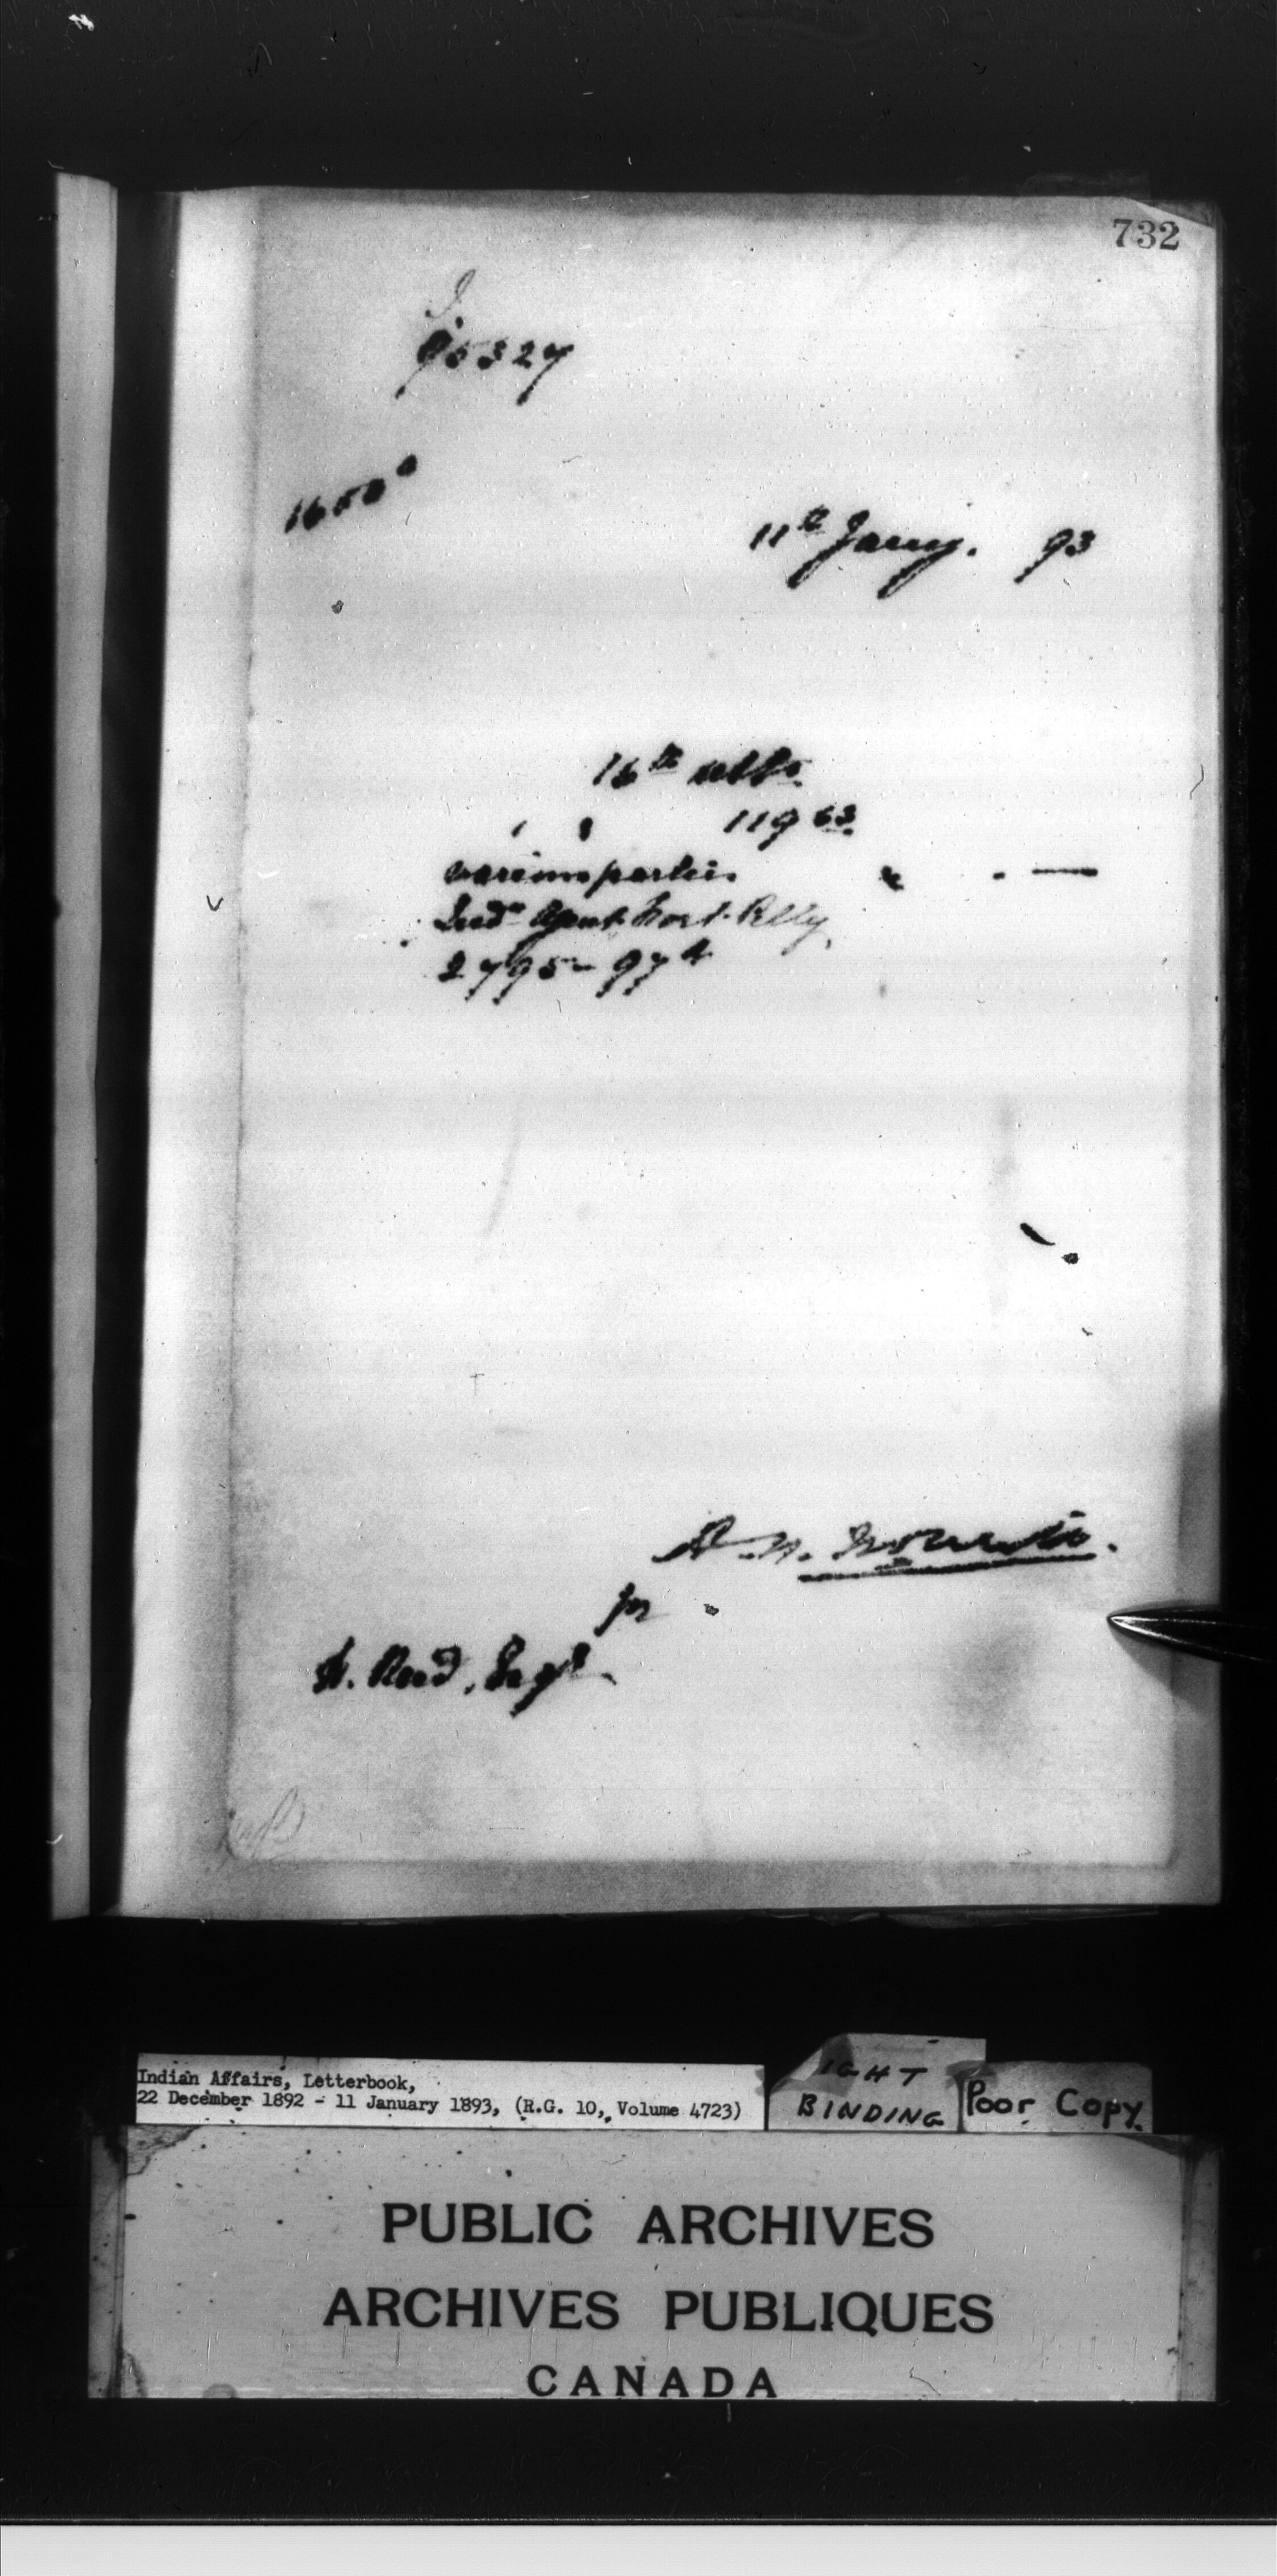 732
95327
1650
11th Jany. 93
16th ulto.
119 63
various parties
Ind. Agent Fort Pelly
2795 - 974
for
H. Reed, Regt
Indian Affairs, Letterbook,
22 December 1892 - 11 January 1893, (R.G. 10, Volume 4723)
IGHT
BINDING
Poor Copy
PUBLIC ARCHIVES
ARCHIVES PUBLIQUES
CANADA